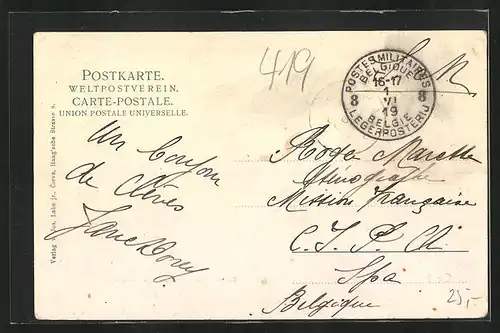 POSTKARTE.
WELTPOSTVEREIN.
CARTE-POSTALE.
UNION POSTALE UNIVERSELLE.
419
S. M.
POSTES MILITAIRES
BELGIQUE
16-17
1
VI
19
8 8
BELGIË
LEGERPOSTERIJ
Un bonjour
de Clèves
Roger Marette
Sténographe
Mission française
C. I. P.
Spa
Belgique
25,-
Verlag Jos. Cleve, Haag'sche Strasse